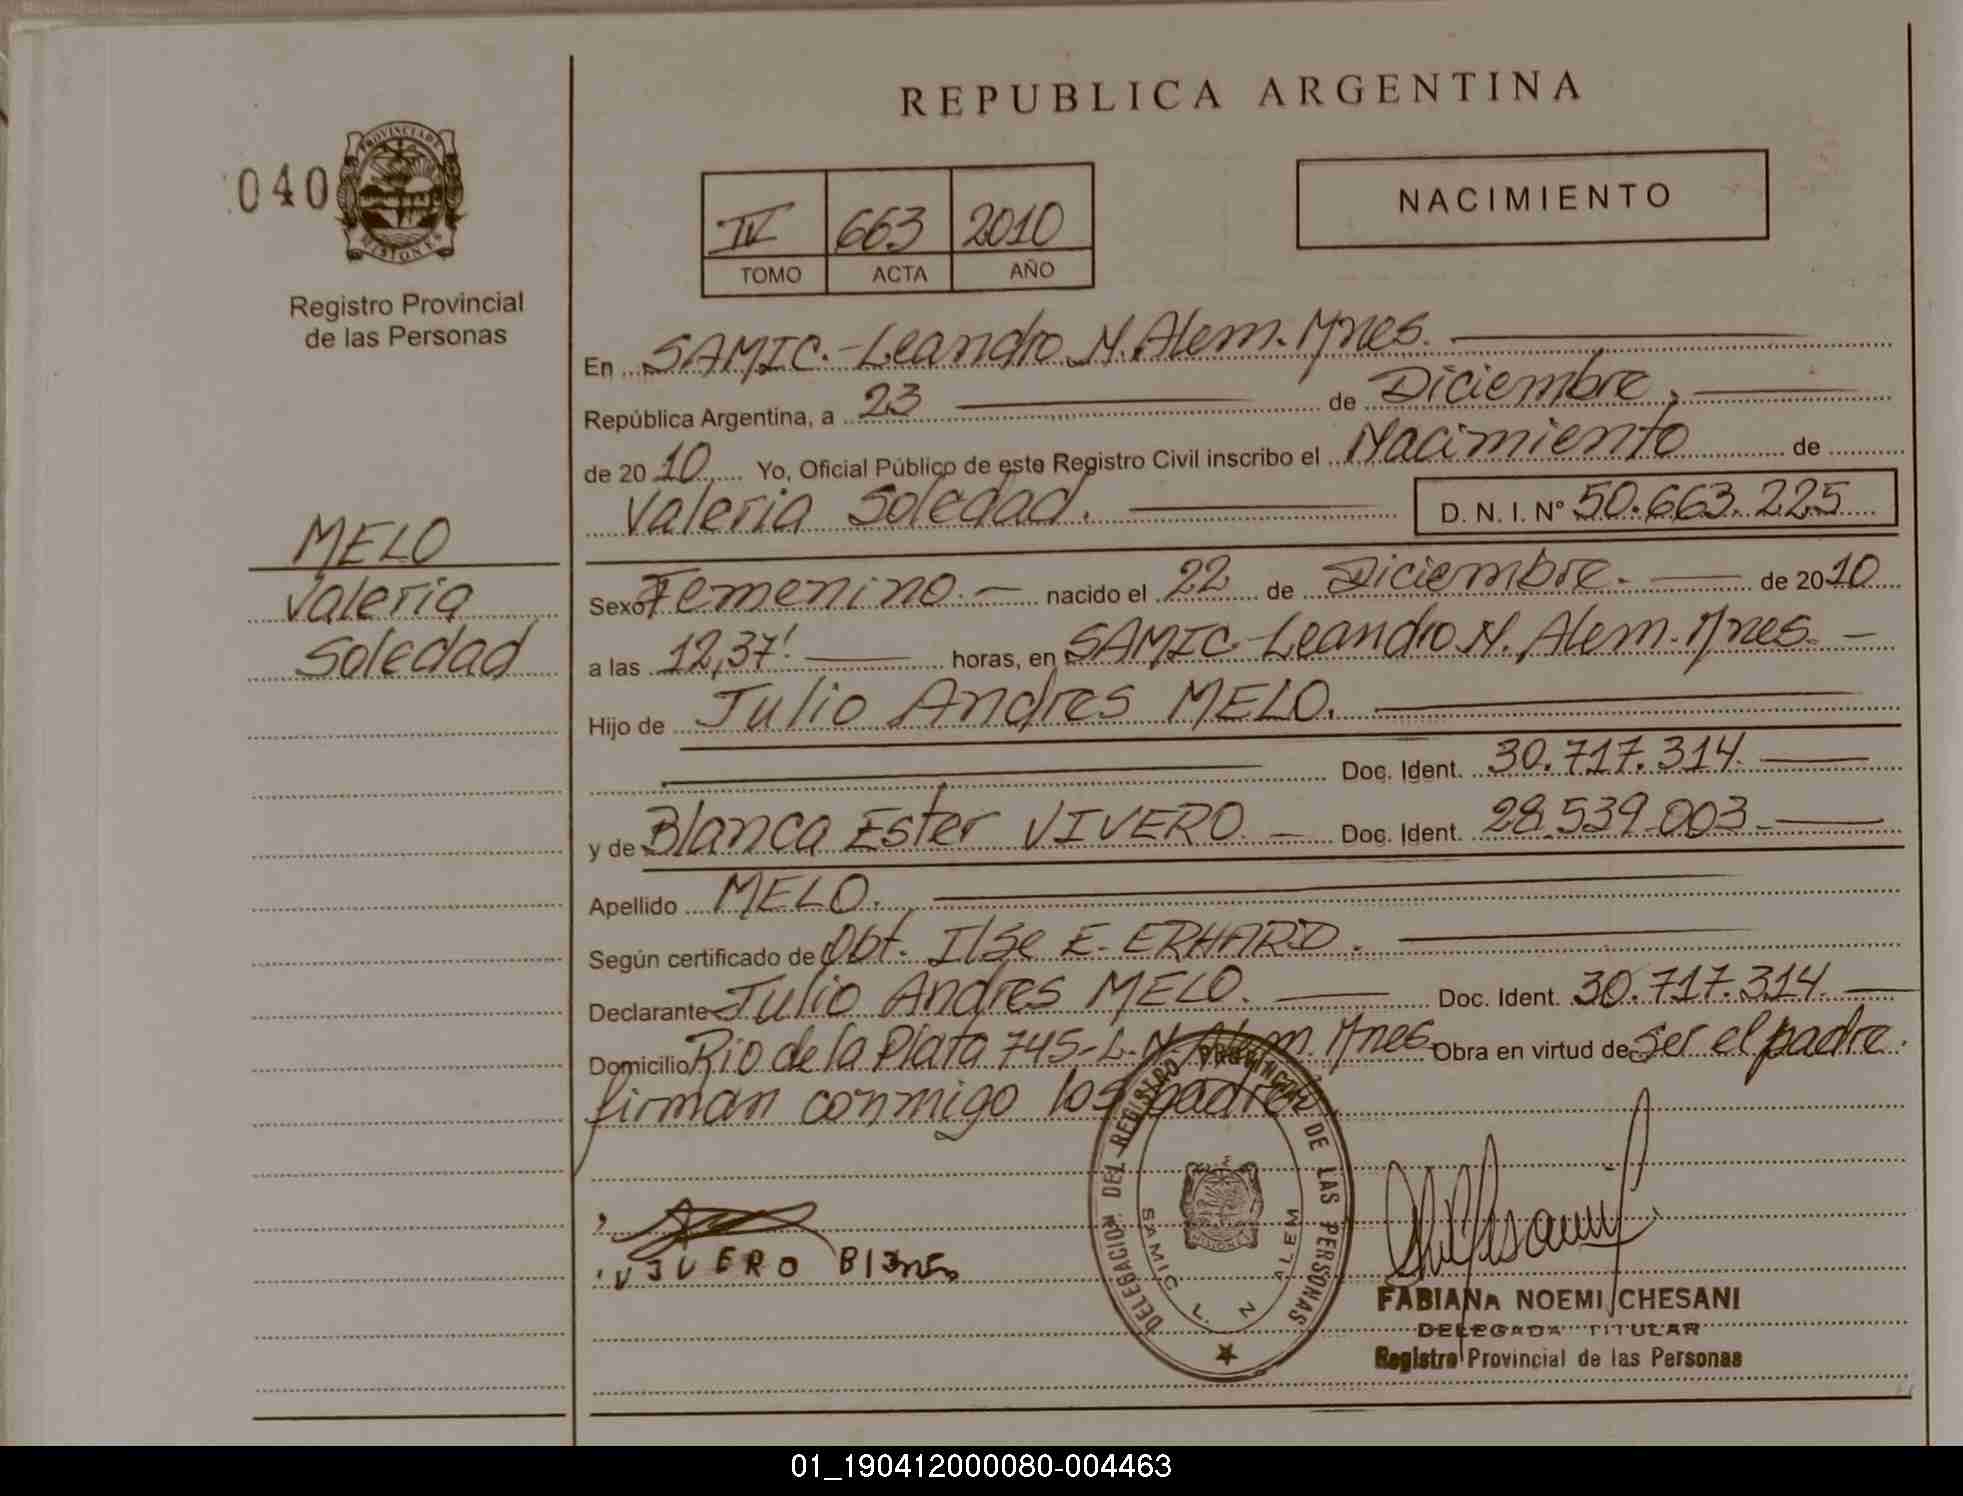 REPUBLICA ARGENTINA
040
PROVINCIA DE
MISIONES
Registro Provincial
de las Personas
IV 663 2010
TOMO ACTA AÑO
NACIMIENTO
En SAMIC.-Leandro N. Alem. Mnes.
República Argentina, a 23 de Diciembre,
de 2010 Yo, Oficial Público de este Registro Civil inscribo el Nacimiento de
Valeria Soledad. D. N. I. Nº 50.663.225
MELO
Valeria
Soledad
Sexo Femenino.- nacido el 22 de Diciembre. de 2010
a las 12,37' horas, en SAMIC-Leandro N. Alem. Mnes.-
Hijo de Julio Andres MELO.
Doc. Ident. 30.717.314.
y de Blanca Ester VIVERO.- Doc. Ident. 28.539.003-
Apellido MELO.
Según certificado de Obt. Ilse E. ERHARD.
Declarante Julio Andres MELO. Doc. Ident. 30.717.314.
Domicilio Rio de la Plata 745-L.N. Alem. Mnes. Obra en virtud de ser el padre.
firman conmigo los padres
VIVERO
DELEGACION DEL REGISTRO PROVINCIAL DE LAS PERSONAS
SAMIC L. N ALEM
MISIONES
FABIANA NOEMI CHESANI
DELEGADA TITULAR
Registro Provincial de las Personas
01_190412000080-004463